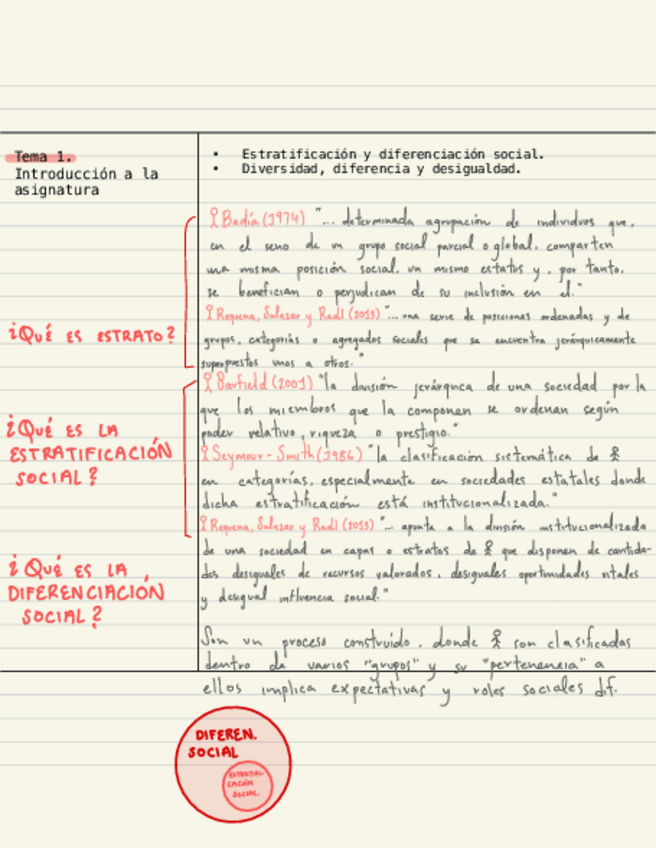 Tema 1.
Introducción a la
asignatura
• Estratificación y diferenciación social.
• Diversidad, diferencia y desigualdad.
¿QUÉ ES ESTRATO?
Badía (1974) "... determinada agrupación de individuos que,
en el seno de un grupo social parcial o global, comparten
una misma posición social, un mismo estatus y, por tanto,
se benefician o perjudican de su inclusión en él."
Requena, Salazar y Radl (2013) "... una serie de posiciones ordenadas y de
grupos, categorías o agregados sociales que se encuentra jerárquicamente
superpuestos unos a otros."
¿QUÉ ES LA
ESTRATIFICACIÓN
SOCIAL?
Barfield (2001) "la división jerárquica de una sociedad por la
que los miembros que la componen se ordenan según
poder relativo, riqueza o prestigio."
Seymour-Smith (1986) "la clasificación sistemática de
en categorías, especialmente en sociedades estatales donde
dicha estratificación está institucionalizada."
Requena, Salazar y Radl (2013) "... apunta a la división institucionalizada
de una sociedad en capas o estratos de que disponen de cantida-
des desiguales de recursos valorados, desiguales oportunidades vitales
y desigual influencia social."
¿QUÉ ES LA
DIFERENCIACIÓN
SOCIAL?
Son un proceso construido, donde son clasificadas
dentro de varios "grupos" y su "pertenencia" a
ellos implica expectativas y roles sociales dif.
DIFEREN.
SOCIAL
ESTRATIFI-
CACIÓN
SOCIAL.